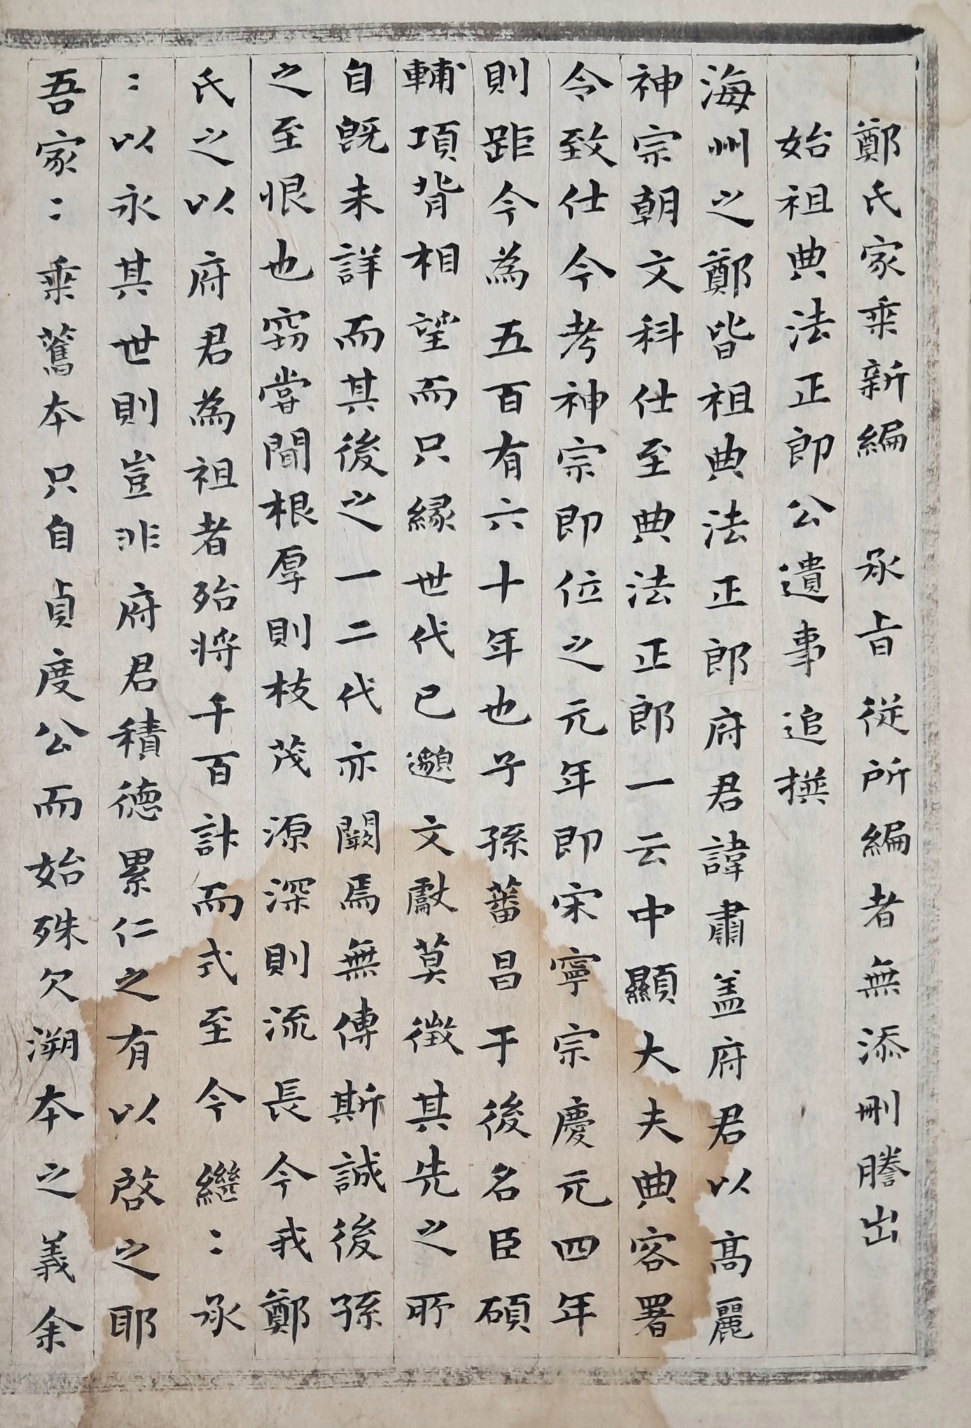 鄭氏家乘新編　承旨從所編者無添刪謄出
始祖典法正郎公遺事追撰
海州之鄭皆祖典法正郎府君諱肅盖府君以高麗
神宗朝文科仕至典法正郎一云中顯大夫典客署
令致仕今考神宗即位之元年即宋寧宗慶元四年
則距今為五百有六十年也子孫蕃昌于後名臣碩
輔項背相望而只緣世代已邈文獻莫徵其先之所
自旣未詳而其後之一二代亦闕焉無傳斯誠後孫
之至恨也窃嘗聞根厚則枝茂源深則流長今我鄭
氏之以府君為祖者殆將千百計而式至今繼〻承
〻以永其世則豈非府君積德累仁之有以啓之耶
吾家〻乘舊本只自貞度公而始殊欠溯本之義余